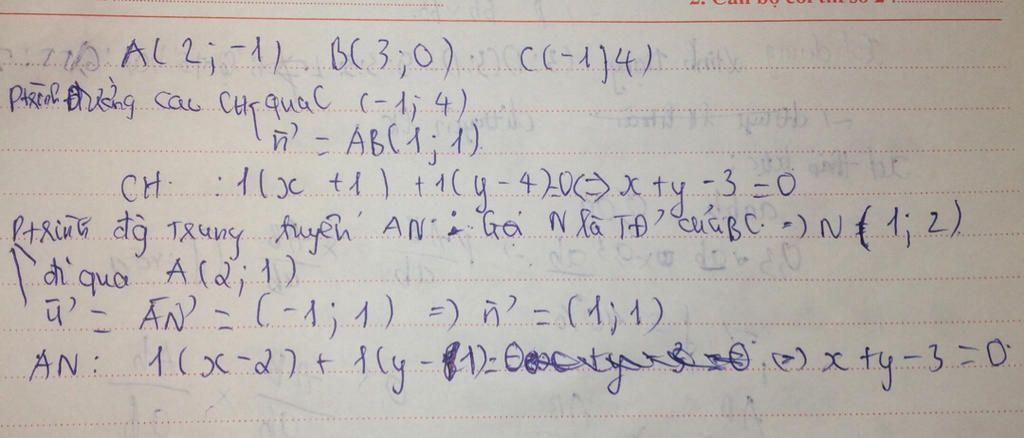 2. Cán bộ coi thi số 2
A(2; -1) B(3; 0) C(-1; 4)
Ptrình Đường cao CH qua C (-1; 4)
n⃗ = AB(1; 1)
CH : 1(x + 1) + 1(y - 4)=0 <=> x + y - 3 = 0
Ptrình đg Trung tuyến AN: Gọi N là TĐ của BC. => N(1; 2)
đi qua A(2; 1)
u⃗ = AN⃗ = (-1; 1) => n⃗ = (1; 1)
AN: 1(x - 2) + 1(y - 1) = 0 <=> x + y - 3 = 0